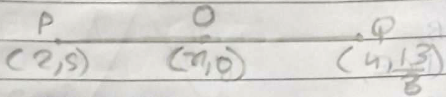 P O Q
(2,5) (n,0) (4,13/3)